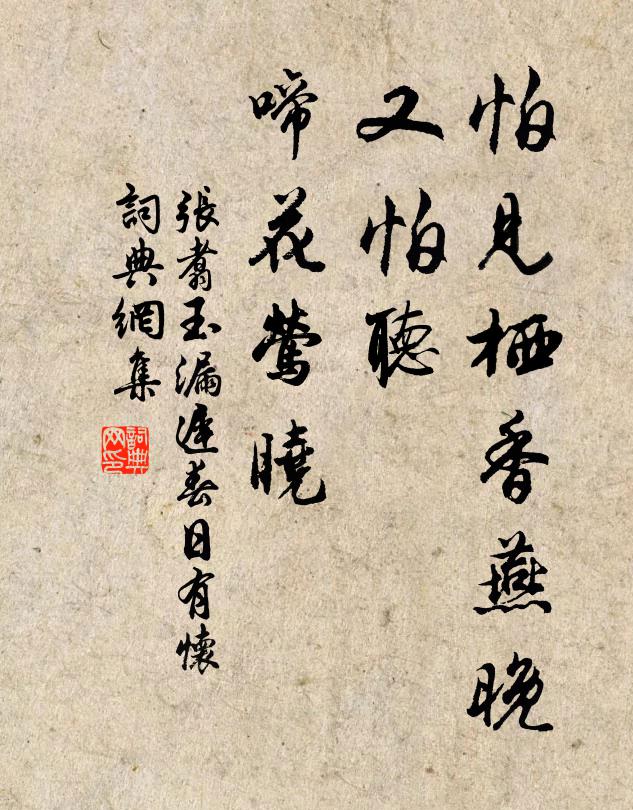 怕見栖香燕晚
又怕聽
啼花鶯曉
張翥玉漏遲春日有懷
詞典網集
詞典網印